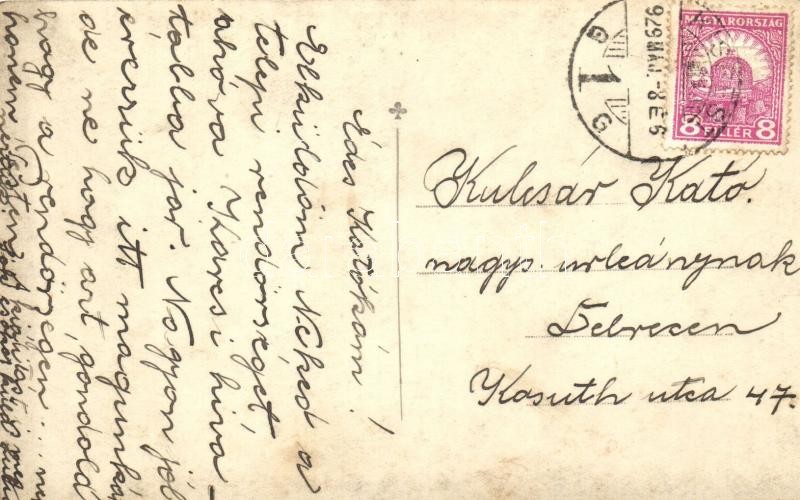 Édes Katókám!
Elküldöm Néked a
telepi rendőrséget
ahova Karcsi hiva-
talba jar. Nagyon jól
érezzük itt magunká
de ne hogy azt gondold
hogy a rendőrségen...
hanem
MAGYARORSZÁG
8 FILLÉR 8
929 MÁJ. -8 E 9
1
Kulcsár Kato.
nagys. urleánynak
Debrecen
Kosuth utca 47.